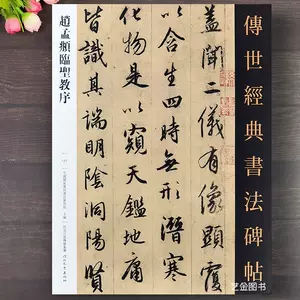 傳世經典書法碑帖
蓋聞二儀有像顯覆
以含生四時無形潛寒
化物是以窺天鑑地庸
皆識其端明陰洞陽賢
趙孟頫臨聖教序
艺金图书